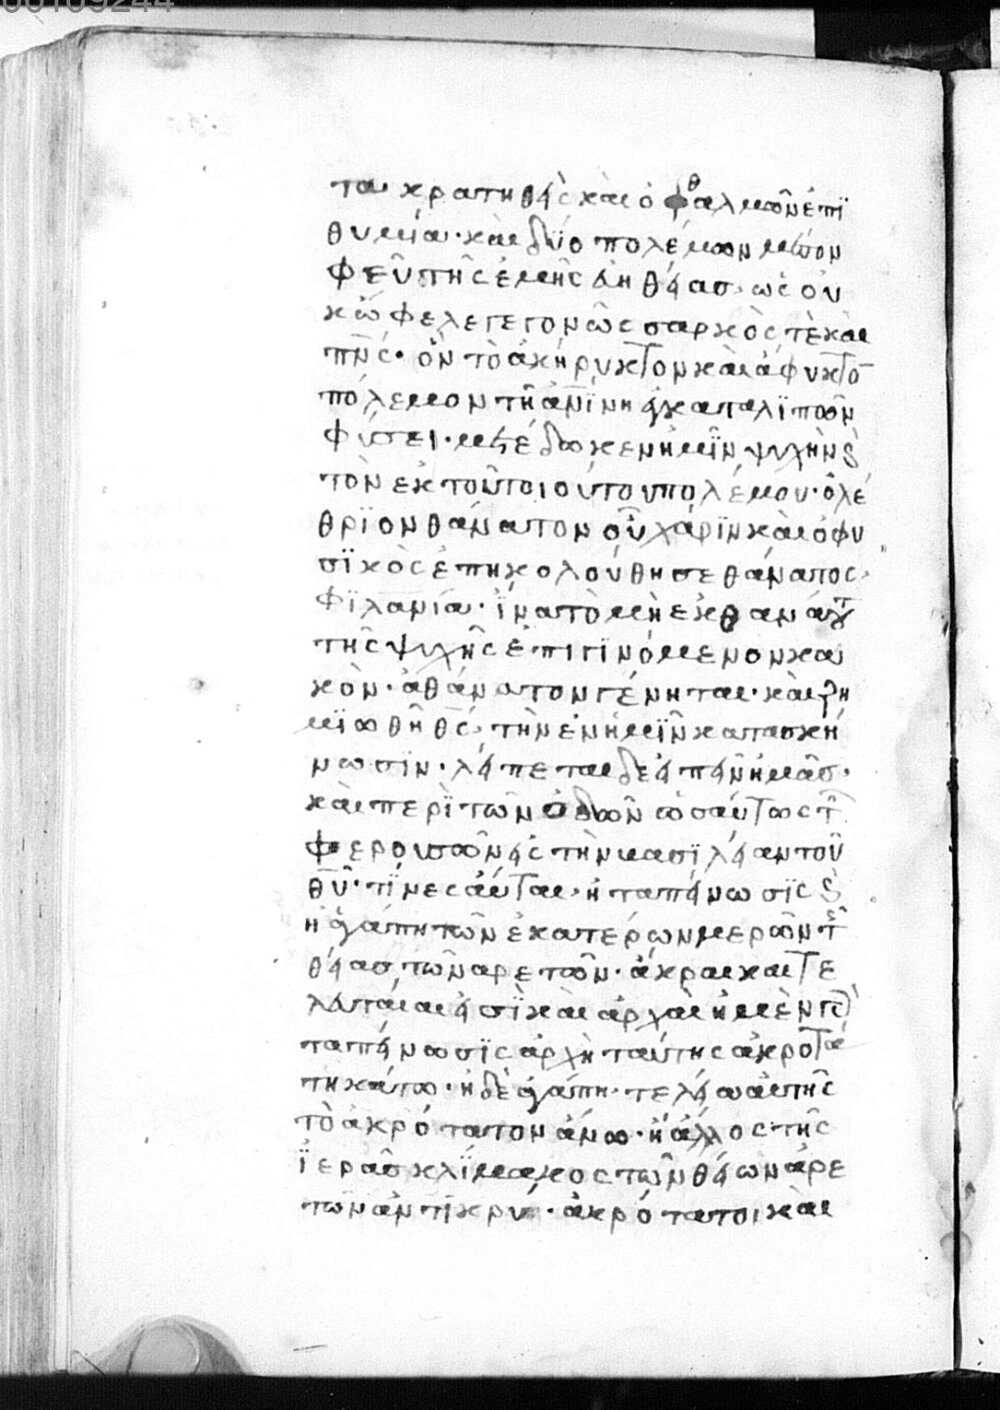 τα· κρατηθεὶς καὶ ὀφθαλμῶν ἐπι
θυμία· καὶ δύο πολέμων μέσον
φεῦ τῆς ἐμῆς ἀηθείας· ὡς οὐ
κ ὤφελε γεγονὼς σαρκός τε καὶ
πν̅ς· ὃν τὸ ἀκήρυκτον καὶ ἄφυκτο
πόλεμον τῇ ἀνΐνη ἐγκαταλιπὼν
φύσει· μετέδωκεν ἡμῖν ψυχὴν ϗ
τὸν ἐκ τοῦ τοιούτου πολέμου· ὀλέ
θριον θάνατον οὗ χάριν καὶ ὁ φυ
σϊκὸς ἐπηκολούθησε θάνατος·
φιλανία· ἵνα τὸ μὴ ἐκ θανάτου
τῆς ψυχῆς ἐπιγινόμενον κα
κὸν· ἀθάνατον γένηται· καὶ ζη
μιωθῇ θς̅· τὴν ἐν ἡμῖν κατασκή
νωσιν· λείπεται δὲ εἰπεῖν ἡμᾶς·
καὶ περὶ τῶν ὁδῶν ὡσαύτως τ
φερουσῶν εἰς τὴν βασιλείαν τοῦ
θυ̅· τίνες αὗται· ἡ ταπείνωσις ϗ
ἡ ἀγάπη τῶν ἑκατέρων μερῶν τ
θείας τῶν ἀρετῶν· ἄκραι καὶ τε
λευταῖαι εἰσὶ καὶ ἀρχαὶ ἡ μὲν γὰρ
ταπείνωσις ἀρχὴ ταύτης ἀκροτά
τη κάτω· ἡ δὲ ἀγάπη· τελεία αὐτῆς
τὸ ἀκρότατον ἄνω· ἢ ἄλλος τῆς
ἱερᾶς κλίμακος τῶν θείων ἀρε
τῶν ἀντικρύ· ἀκρότατοι καὶ